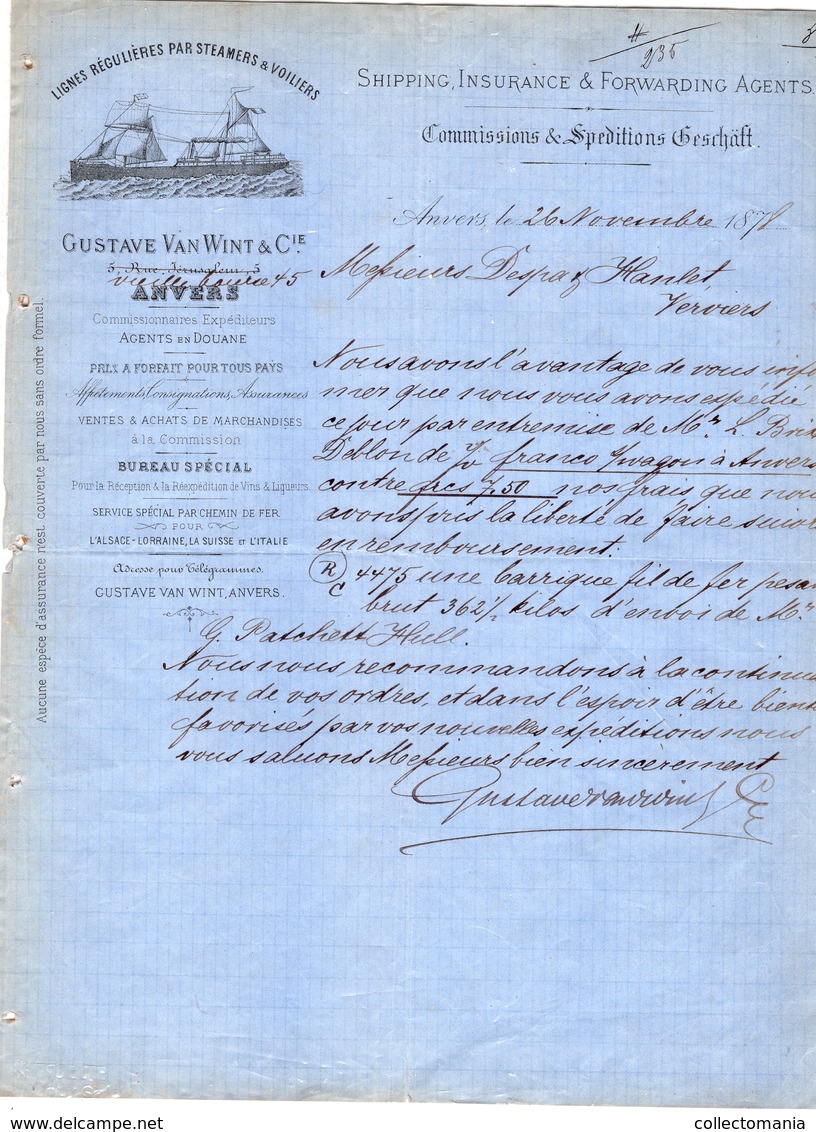 #
235
LIGNES RÉGULIÈRES PAR STEAMERS & VOILIERS
SHIPPING, INSURANCE & FORWARDING AGENTS.
Commissions & Speditions Geschäft.
Anvers, le 26 Novembre 1878
GUSTAVE VAN WINT & CIE.
5, Rue Jérusalem, 5
vieille bourse 45
ANVERS
Commissionnaires Expéditeurs
AGENTS EN DOUANE
PRIX A FORFAIT POUR TOUS PAYS
Affrètements, Consignations, Assurances
VENTES & ACHATS DE MARCHANDISES
à la Commission
BUREAU SPÉCIAL
Pour la Réception & la Réexpédition de Vins & Liqueurs.
SERVICE SPÉCIAL PAR CHEMIN DE FER
POUR
L'ALSACE-LORRAINE, LA SUISSE ET L'ITALIE
Adresse pour Télégrammes.
GUSTAVE VAN WINT, ANVERS.
Aucune espèce d'assurance n'est couverte par nous sans ordre formel.
Messieurs Despa & Hanlet,
Verviers
Nous avons l'avantage de vous infor
mer que nous vous avons expédié
ce jour par entremise de Mr. L. Brix
Deblon de franco s/wagon à Anvers
contre frcs 7.50 nos frais que nous
avons pris la liberté de faire suivre
en remboursement:
R
C
4475 une barrique fil de fer pesan
brut 362½ kilos d'envoi de Mr.
G. Patchett Hull.
Nous nous recommandons à la continua
tion de vos ordres, et dans l'espoir d'être bientô
favorisés par vos nouvelles expéditions nous
vous saluons Messieurs bien sincèrement
Gustave van Wint & Cie
collectomania